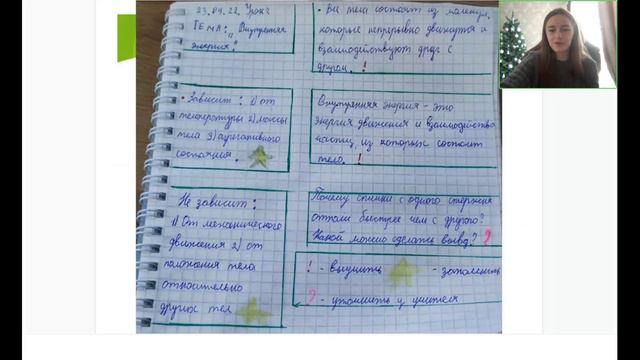 23.04.22. Урок
Тема: "Внутренняя
энергия".
• Все тела состоят из молекул,
которые непрерывно движутся и
взаимодействуют друг с
другом. !
• Зависит: 1) от
температуры 2) массы
тела 3) агрегатного
состояния.
Внутренняя энергия - это
энергия движения и взаимодейств
частиц, из которых состоит
тело. !
Не зависит:
1) От механического
движения 2) от
положения тела
относительно
других тел
Почему спички с одного стержня
отпали быстрее чем с другого?
Какой можно сделать вывод? ?
! - выучить - запомнить
? - уточнить у учителя